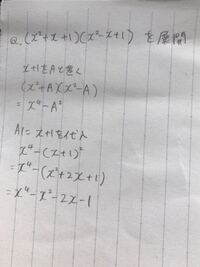 Q. (x²+x+1)(x²-x+1) を展開
x+1をAと置く
(x²+A)(x²-A)
= x⁴-A²
Aにx+1を代入
x⁴-(x+1)²
=x⁴-(x²+2x+1)
=x⁴-x²-2x-1